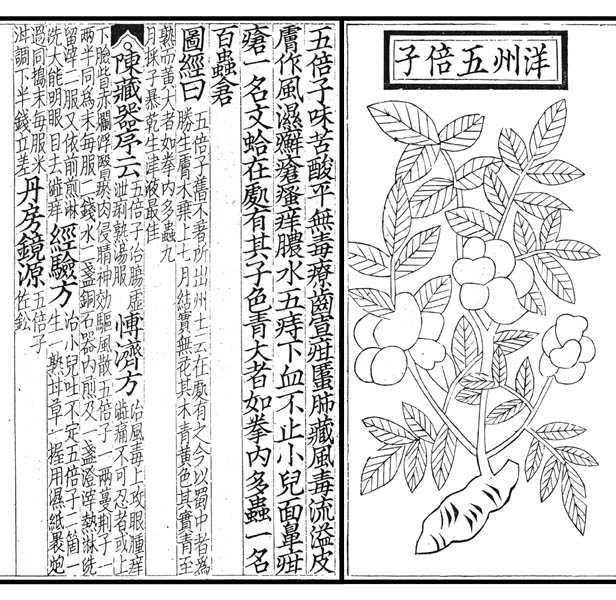 洋州五倍子
五倍子味苦酸平無毒療齒宣疳䘌肺藏風毒流溢皮
膚作風濕癬瘡瘙痒膿水五痔下血不止小兒面鼻疳
瘡一名文蛤在處有其子色青大者如拳內多蟲一名
百蟲倉
圖經曰
五倍子舊不著所出州土云在處有之今以蜀中者爲
勝生膚木葉上七月結實無花其木青黃色其實青至
熟而黃大者如拳內多蟲九
月採子暴乾生津液最佳
陳藏器序云
五倍子治腸虛
泄痢熟湯服
博濟方
治風毒上攻眼腫痒
澁痛不可忍者或上
下瞼眥赤爛浮瞖瘀肉侵睛神効驅風散五倍子一兩蔓荆子一
兩半同爲末每服二錢水二盞銅石器內煎及一盞澄滓熱淋洗
留滓二服又依前煎淋
洗大能明眼目去澁痒
經驗方
治小兒吐不定五倍子二箇一
生一熟甘草一握用濕紙裹炮
過同搗末每服米
泔調下半錢立差
丹房鏡源
五倍子
佐鈆